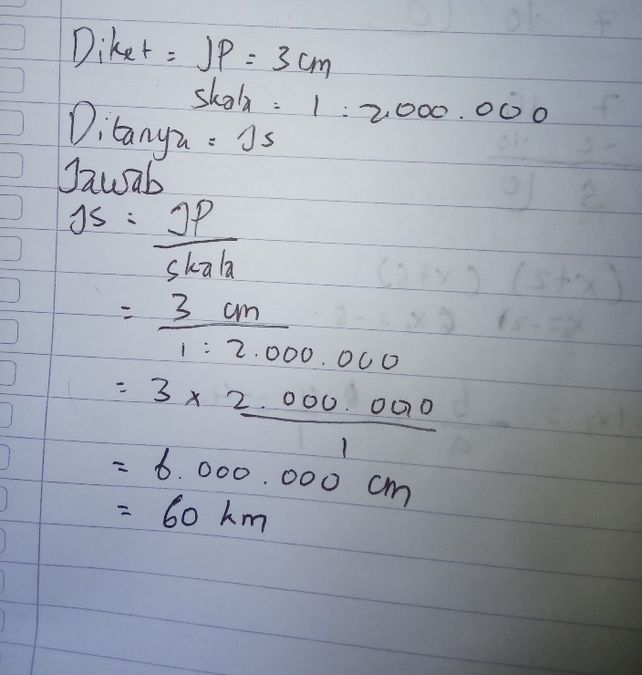 Diket = JP = 3 cm
skala = 1 : 2.000.000
Ditanya = Js
Jawab
JS = JP
skala
= 3 cm
1 : 2.000.000
= 3 x 2.000.000
1
= 6.000.000 cm
= 60 km